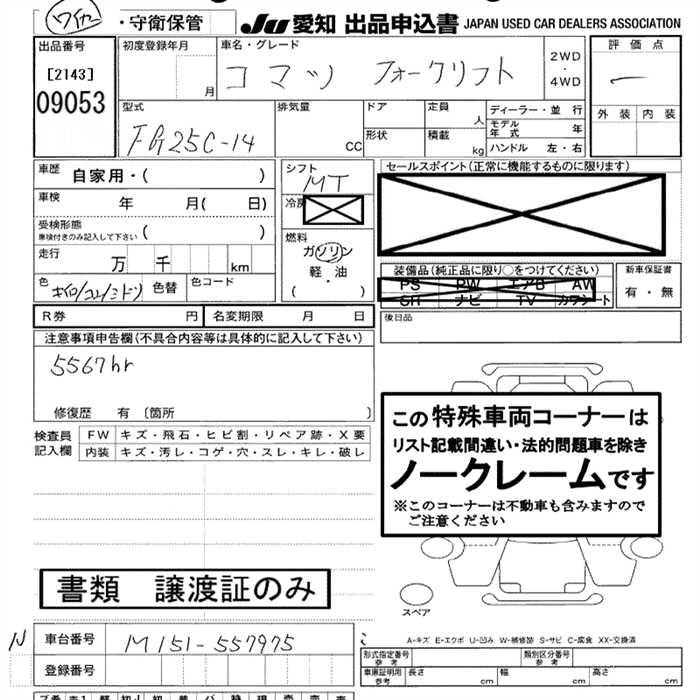 ワイケ
・守衛保管
JU 愛知 出品申込書 JAPAN USED CAR DEALERS ASSOCIATION
出品番号
[2143]
09053
初度登録年月
月
車名・グレード
コマツ フォークリフト
2WD
・
4WD
評価点
外装 内装
型式
FG25C-14
排気量
CC
ドア
形状
定員
人
積載
kg
ディーラー・並 行
モデル年式 年
ハンドル 左・右
車歴 自家用・( )
車検 年 月( 日)
受検形態
車検付きのみ記入して下さい ( )
走行 万 千 km
色 キイロ/コン/ミドリ 色替 色コード
シフト
MT
冷房
燃料
ガソリン
軽・油
( )
セールスポイント(正常に機能するものに限ります)
装備品(純正品に限り○をつけてください)
PS PW エアB AW
SR ナビ TV カワシート
新車保証書
有・無
後日品
R券 円 名変期限 月 日
注意事項申告欄(不具合内容等は具体的に記入して下さい)
5567hr
修復歴 有 〔箇所 〕
検査員記入欄
FW キズ・飛石・ヒビ割・リペア跡・X要
内装 キズ・汚レ・コゲ・穴・スレ・キレ・破レ
この特殊車両コーナーは
リスト記載間違い・法的問題車を除き
ノークレームです
※このコーナーは不動車も含みますので
ご注意ください
書類 譲渡証のみ
スペア
A-キズ E-エクボ U-凹み W-補修跡 S-サビ C-腐食 XX-交換済
N 車台番号 M151-557975
登録番号
形式指定番号
参考
類別区分番号
参考
車庫証明用
参考
長さ cm 幅 cm 高さ cm